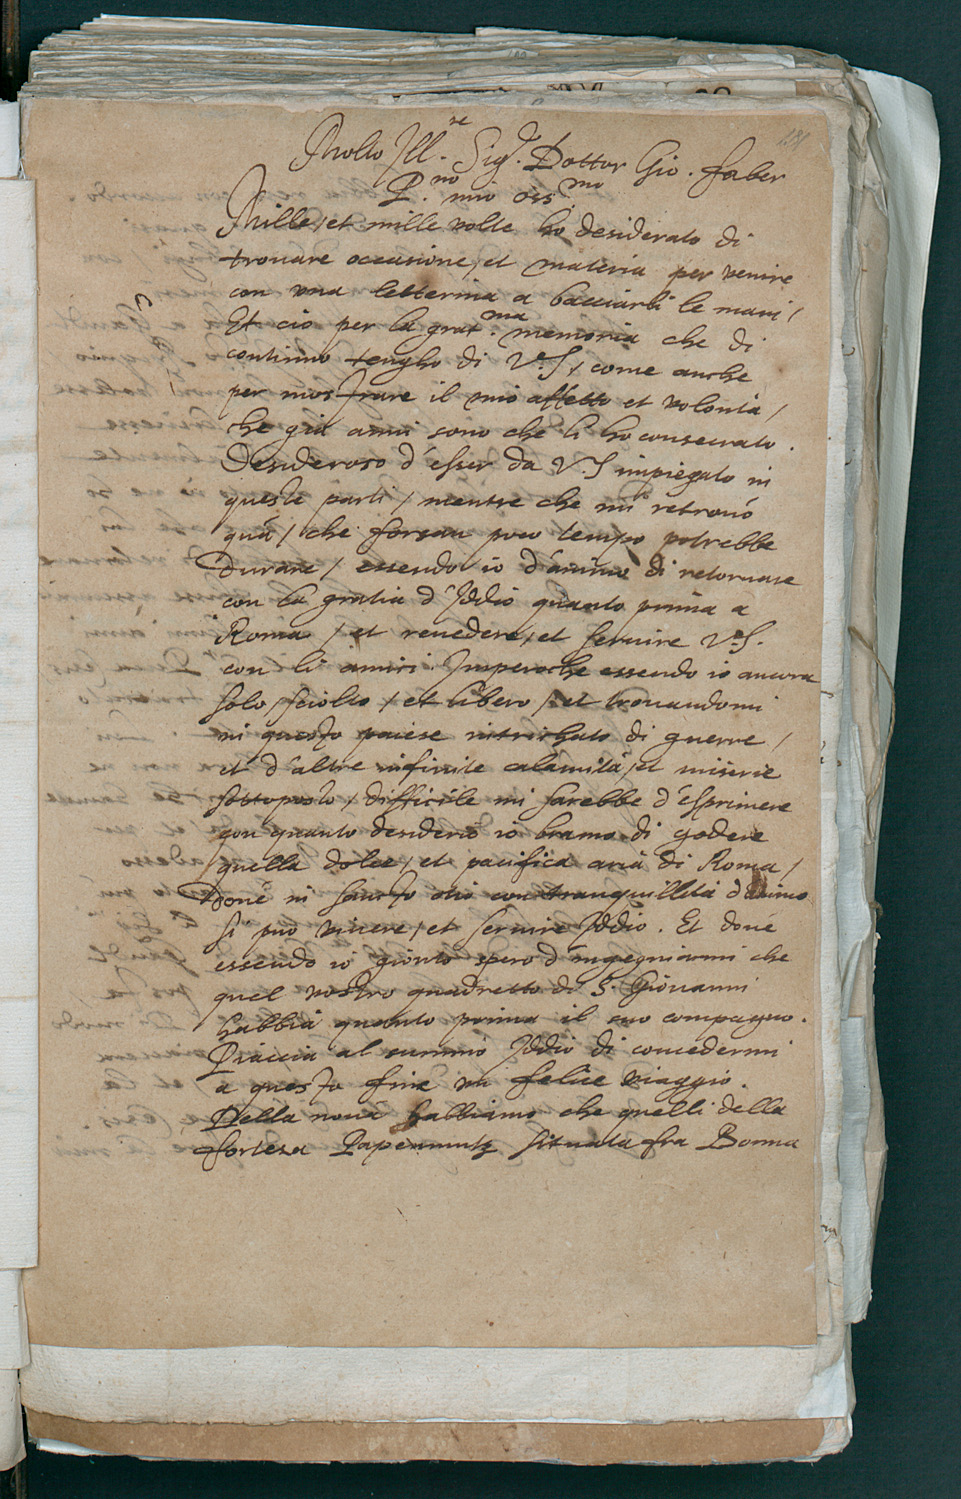 181
Molto Ill.re Sig.r Dottor Gio. faber
P.no mio oss.mo
Mille, et mille volte ho desiderato di
trovare occasione, et materia per venire
con una letterina a bacciarli le mani /
Et ciò per la grat.ma memoria che di
continuo tengho di V.S, come anche
per mostrare il mio affetto et volontà /
che già anni sono che li ho consecrato.
Desideroso d'esser da V.S impiegato in
queste parti / mentre che mi retrovo
quà / che forsan poco tempo potrebbe
Durare / essendo io d'animo di retornare
con la gratia d'Iddio quanto prima a
Roma / et revedere, et servire V.S.
con li amici. Imperoche essendo io ancora
solo, sciolto / et libero / et trovandomi
in questo paiese intrichato di guerre /
et d'altre infinite calamità, et miserie
sottoposto / difficile mi sarebbe d'esprimere
con quanto desiderio io bramo di godere
quella dolce, et pacifica aria di Roma /
Dove in santo otio con tranquillità d'animo
si può vivere, et servire Iddio. Et dove
essendo io gionto spero d'ingegniarmi che
quel vostro quadretto di S. Giovanni
habbia quanto prima il suo compagno.
Piaccia al summo Iddio di concedermi
a questo fine un felice viaggio.
Della nova habbiamo che quelli della
fortezza Papenmutz situata fra Bonna